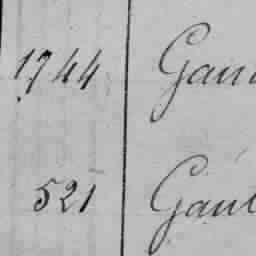 1744 Gau
521 Gaul